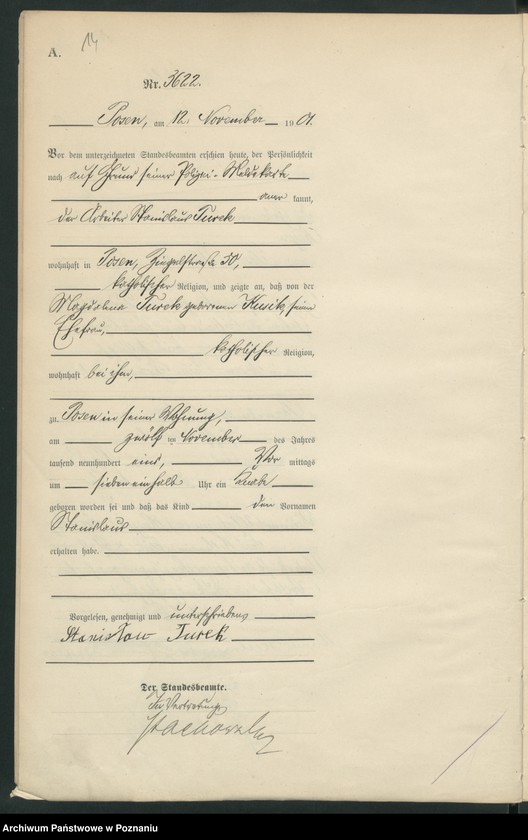 14
A.
Nr. 3622.
Posen, am 12. November 1901.
Vor dem unterzeichneten Standesbeamten erschien heute, der Persönlichkeit
nach auf Grund seiner Polizei-Meldekarte
aner kannt,
der Arbeiter Stanislaus Turek
wohnhaft in Posen, 30,
katholischer Religion, und zeigte an, daß von der
Magdalena Turek geborenen Kusik, seiner
Ehefrau,
katholischer Religion,
wohnhaft bei ihm,
zu Posen in seiner Wohnung,
am zwölf ten November des Jahres
tausend neunhundert eins, Vor mittags
um sieben einhalb Uhr ein Knabe
geboren worden sei und daß das Kind den Vornamen
Stanislaus
erhalten habe.
Vorgelesen, genehmigt und unterschrieben
Stanisław Turek
Der Standesbeamte.
In Vertretung
Archiwum Państwowe w Poznaniu